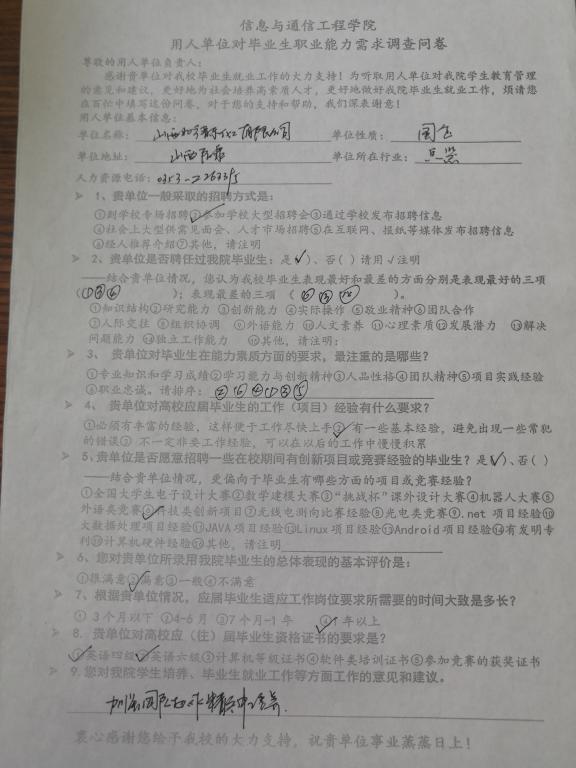 信息与通信工程学院
用人单位对毕业生职业能力需求调查问卷
尊敬的用人单位负责人:
感谢贵单位对我校毕业生就业工作的大力支持!为听取用人单位对我院学生教育管理
的意见和建议,更好地为社会培养高素质人才,更好地做好我院毕业生就业工作,烦请您
在百忙中填写这份问卷,对于您的支持和帮助,我们深表谢意!
用人单位基本信息:
单位名称: 山西 有限公司 单位性质: 国企
单位地址: 山西阳泉 单位所在行业:
人力资源电话: 0353-2263315
➢ 1、贵单位一般采取的招聘方式是:
①到学校专场招聘②参加学校大型招聘会③通过学校发布招聘信息
④社会上大型供需见面会、人才市场招聘⑤在互联网、报纸等媒体发布招聘信息
⑥经人推荐介绍⑦其他,请注明
➢ 2、贵单位是否聘任过我院毕业生:是(√)、否( )请用√注明
——结合贵单位情况,您认为我校毕业生表现最好和最差的方面分别是表现最好的三项
(①③⑥ );表现最差的三项 ( )。
①知识结构②研究能力 ③创新能力 ④实际操作 ⑤敬业精神⑥团队合作
⑦人际交往 ⑧组织协调 ⑨外语能力 ⑩人文素养 ⑪心理素质⑫发展潜力 ⑬解决
问题能力 ⑭独立工作能力 ⑮其他,请注明:
➢ 3、 贵单位对毕业生在能力素质方面的要求,最注重的是哪些?
①专业知识和学习成绩②学习能力与创新精神③人品性格④团队精神⑤项目实践经验
⑥职业忠诚。请排序: ②⑥④①③⑤
➢ 4、 贵单位对高校应届毕业生的工作(项目)经验有什么要求?
①必须有丰富的经验,这样便于工作尽快上手②有一些基本经验,避免出现一些常犯
的错误③ 不一定非要工作经验,可以在以后的工作中慢慢积累
➢ 5、贵单位是否愿意招聘一些在校期间有创新项目或竞赛经验的毕业生?是(√)、否( )
——结合贵单位情况,更偏向于毕业生有哪些方面的项目或竞赛经验?
①全国大学生电子设计大赛②数学建模大赛③“挑战杯”课外设计大赛④机器人大赛⑤
外语类竞赛⑥科技类创新项目⑦无线电测向比赛经验⑧光电类竞赛⑨.net 项目经验⑩
大数据处理项目经验⑪JAVA项目经验⑫Linux项目经验⑬Android项目经验⑭有发明专
利⑮计算机硬件经验⑯其他,请注明
➢ 6、您对贵单位所录用我院毕业生的总体表现的基本评价是:
①很满意②满意③一般④不满意
➢ 7、根据贵单位情况,应届毕业生适应工作岗位要求所需要的时间大致是多长?
① 3个月以下 ②4-6月 ③7个月-1年 ④1年以上
➢ 8. 贵单位对高校应(往)届毕业生资格证书的要求是?
①英语四级②英语六级③计算机等级证书④软件类培训证书⑤参加竞赛的获奖证书
➢ 9.您对我院学生培养、毕业生就业工作等方面工作的意见和建议。
加强团队协作精神培养.
衷心感谢您给予我校的大力支持,祝贵单位事业蒸蒸日上!